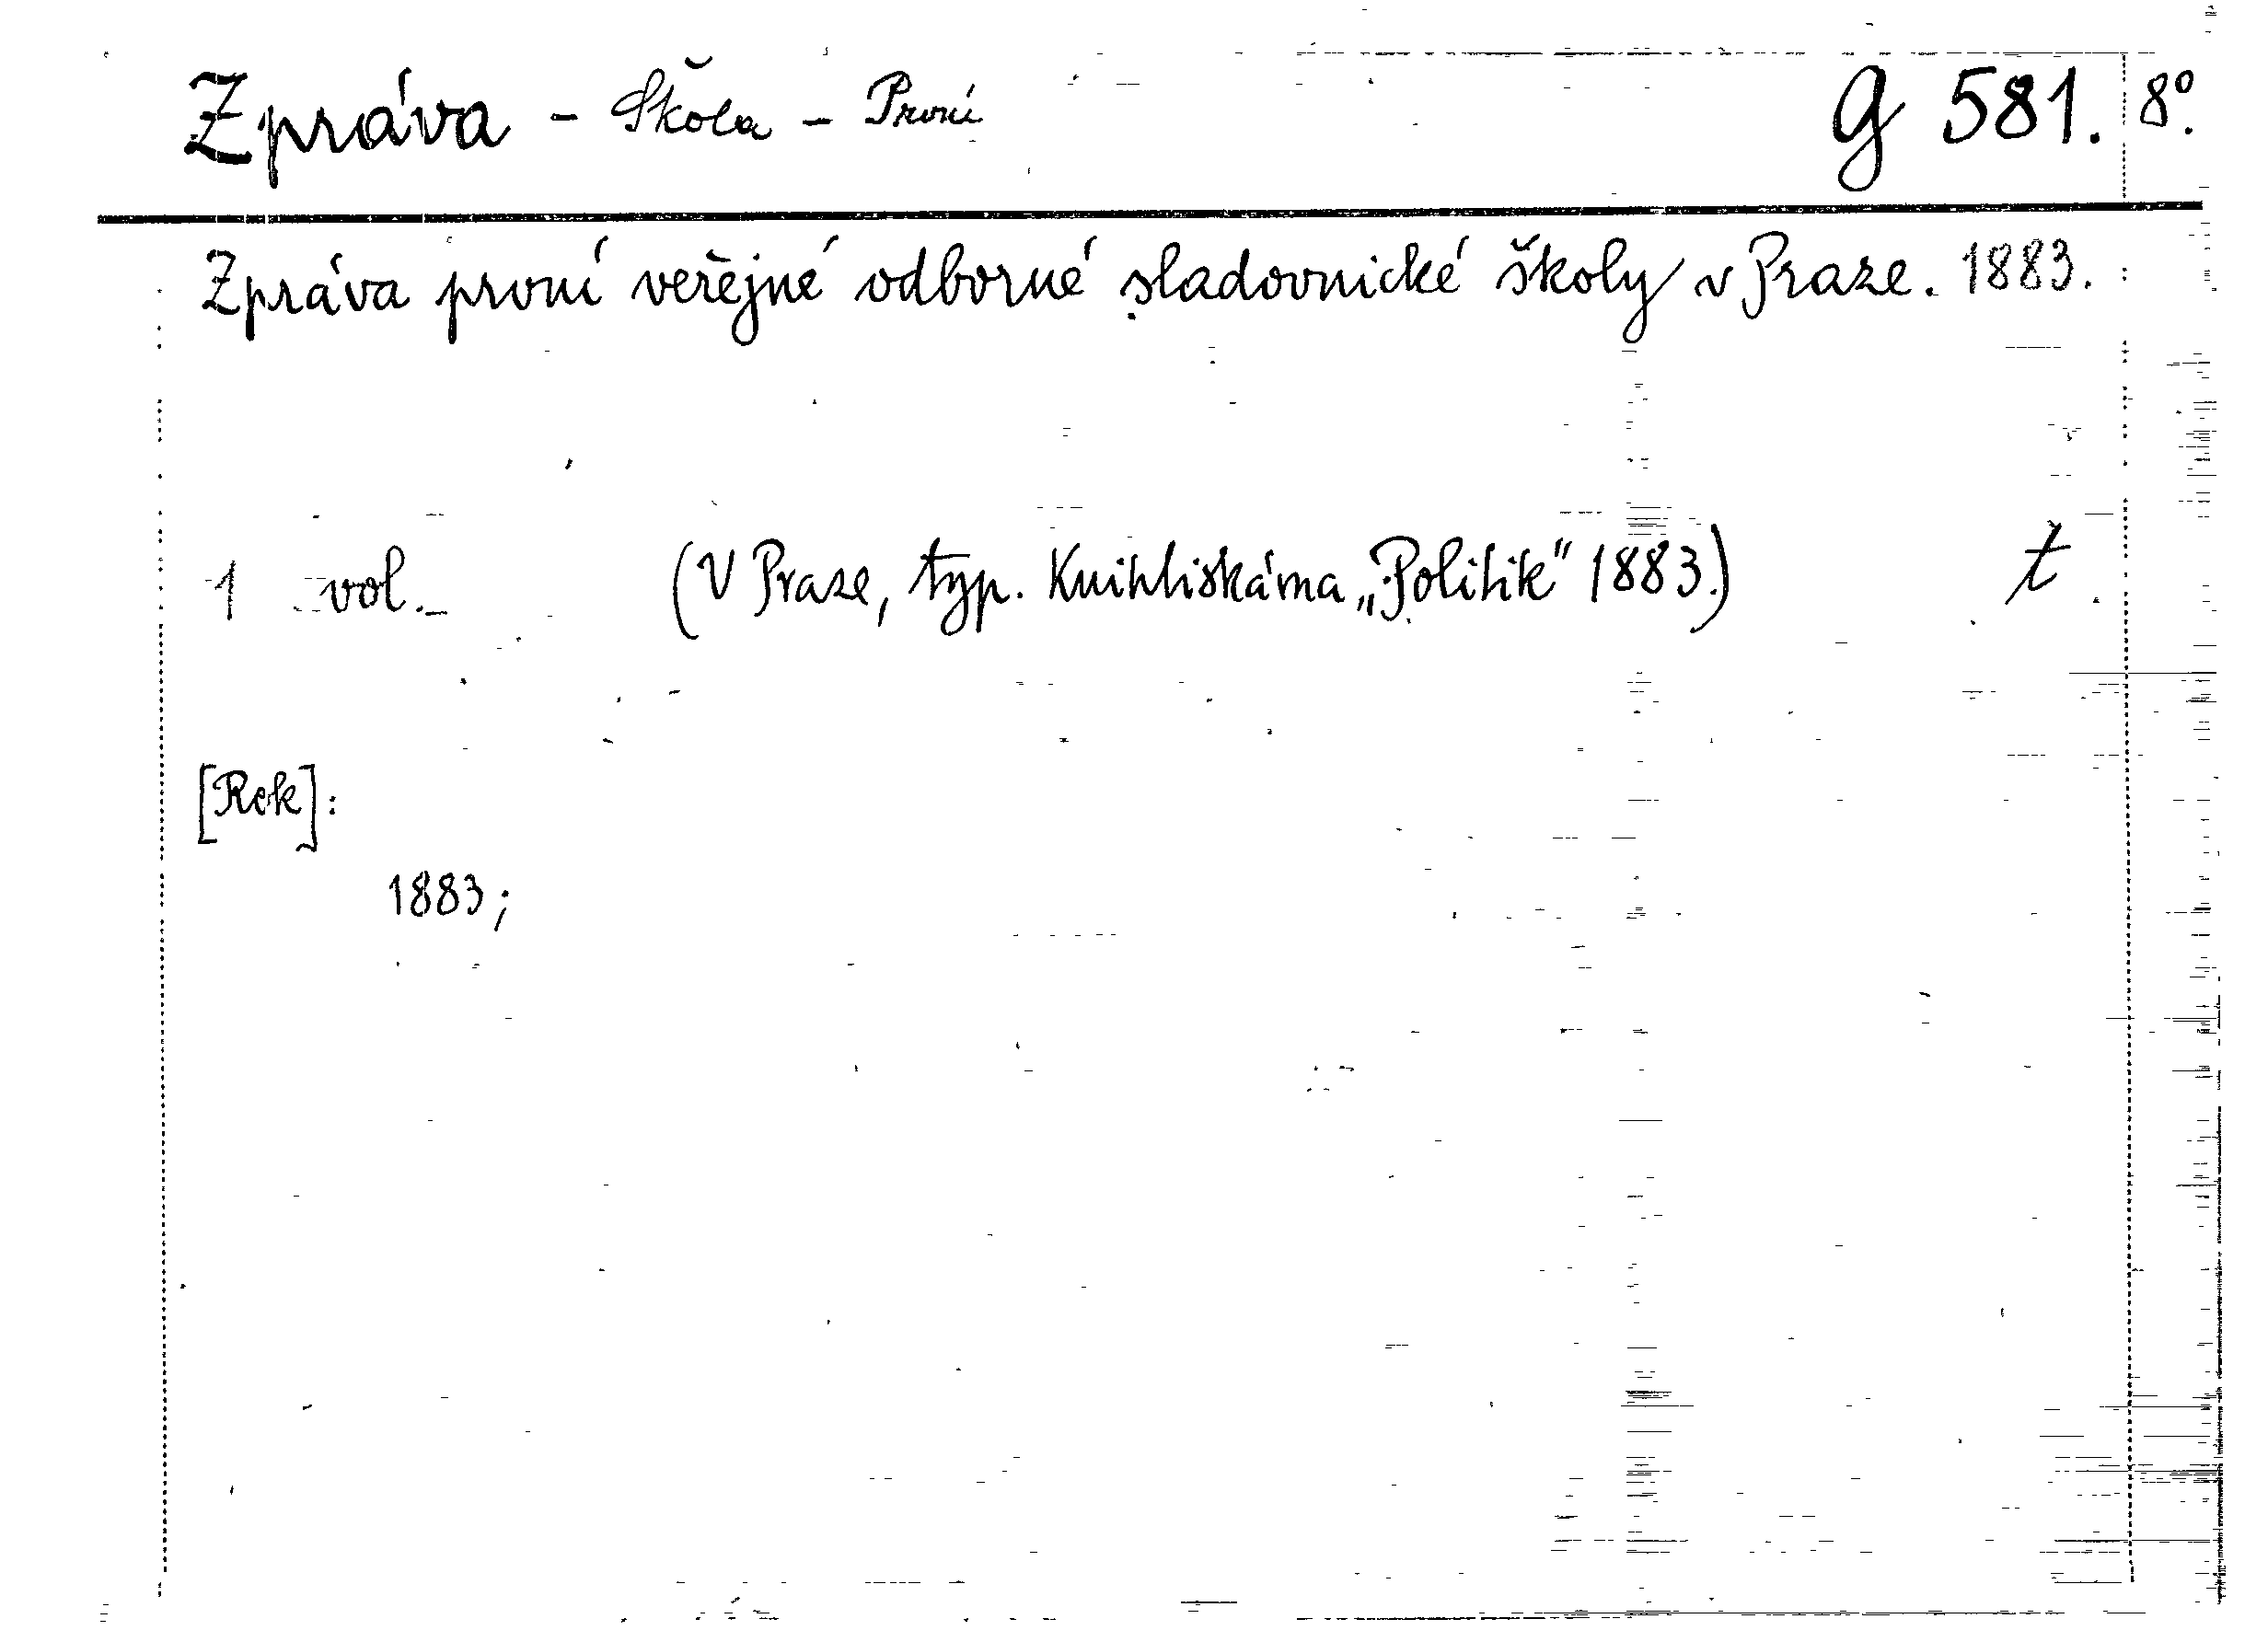 Zpráva - Škola - První G 581. 8°.
Zpráva první veřejné odborné sladovnické školy v Praze. 1883.
1 vol. (V Praze, typ. Knihtiskárna „Politik" 1883.) t
[Rok]:
1883;